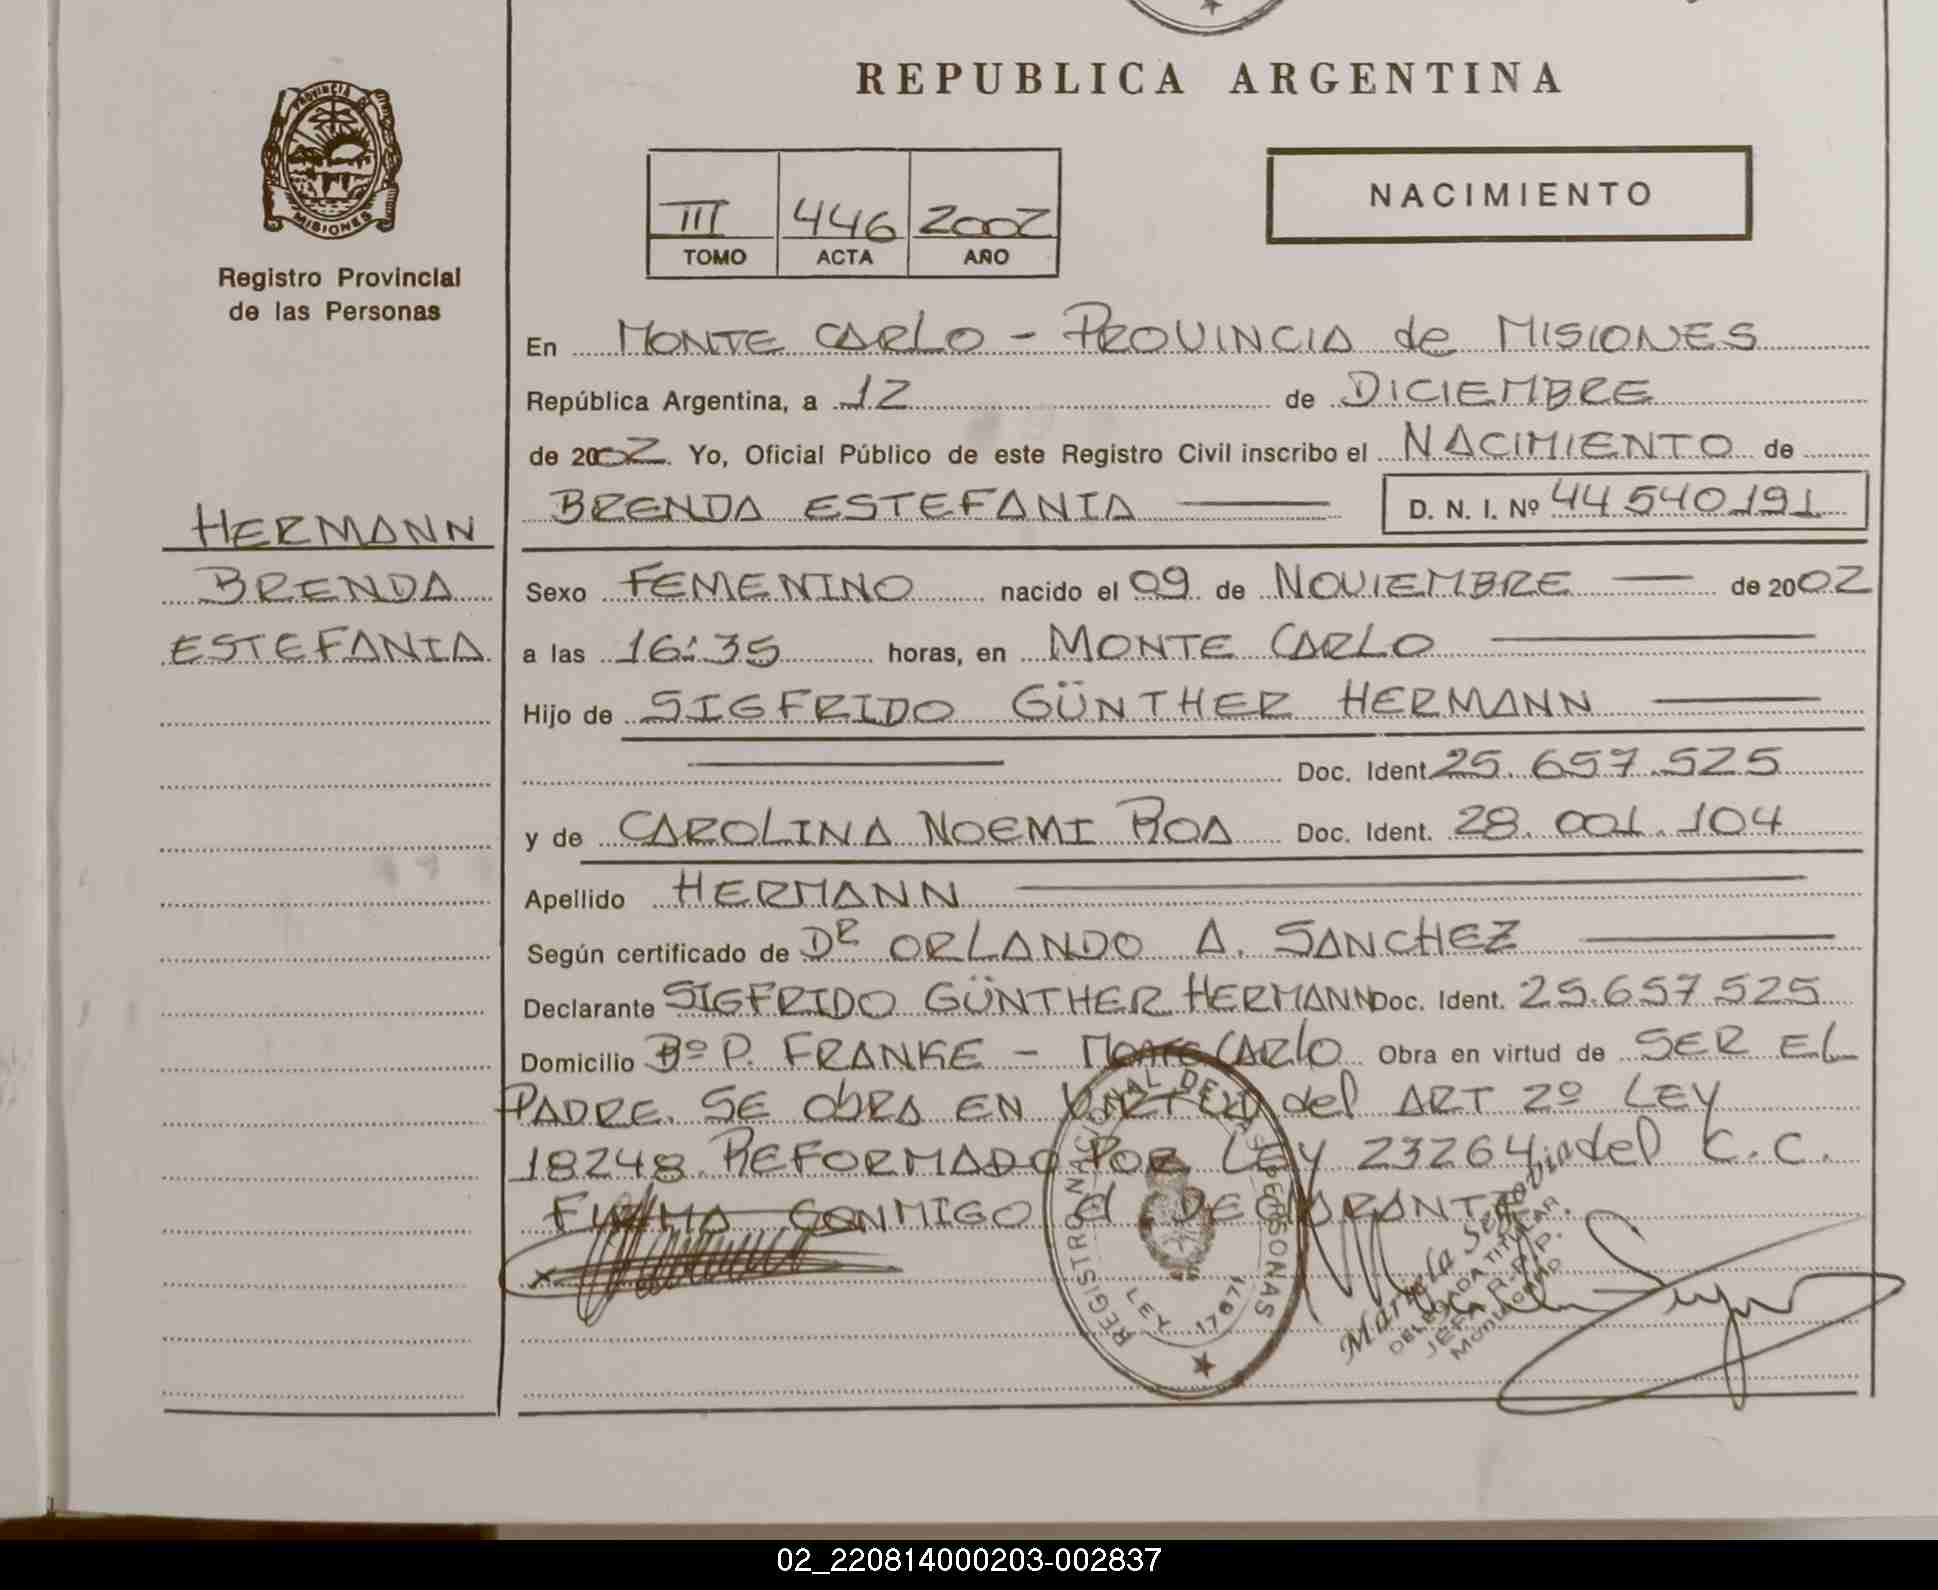 REPUBLICA ARGENTINA
PROVINCIA DE
MISIONES
Registro Provincial
de las Personas
NACIMIENTO
III 446 2002
TOMO ACTA AÑO
En MONTE CARLO - PROVINCIA de MISIONES
República Argentina, a 12 de DICIEMBRE
de 2002 Yo, Oficial Público de este Registro Civil inscribo el NACIMIENTO de
BRENDA ESTEFANIA D. N. I. Nº 44 540 191
HERMANN
BRENDA
ESTEFANIA
Sexo FEMENINO nacido el 09 de NOVIEMBRE de 2002
a las 16:35 horas, en MONTE CARLO
Hijo de SIGFRIDO GÜNTHER HERMANN
Doc. Ident. 25.657.525
y de CAROLINA NOEMI ROA Doc. Ident. 28.001.104
Apellido HERMANN
Según certificado de DR ORLANDO A. SANCHEZ
Declarante SIGFRIDO GÜNTHER HERMANN Doc. Ident. 25.657.525
Domicilio Bº P. FRANKE - MONTE CARLO Obra en virtud de SER EL
PADRE. SE ObRA EN VIRTUD del ART 2º LEY
18248 REFORMADO POR LEY 23264 del C.C.
FIRMA CONMIGO el DECLARANTE
x
REGISTRO NACIONAL DE LAS PERSONAS
LEY 17671
DELEGADA TITULAR
JEFA R.P.P.
02_220814000203-002837